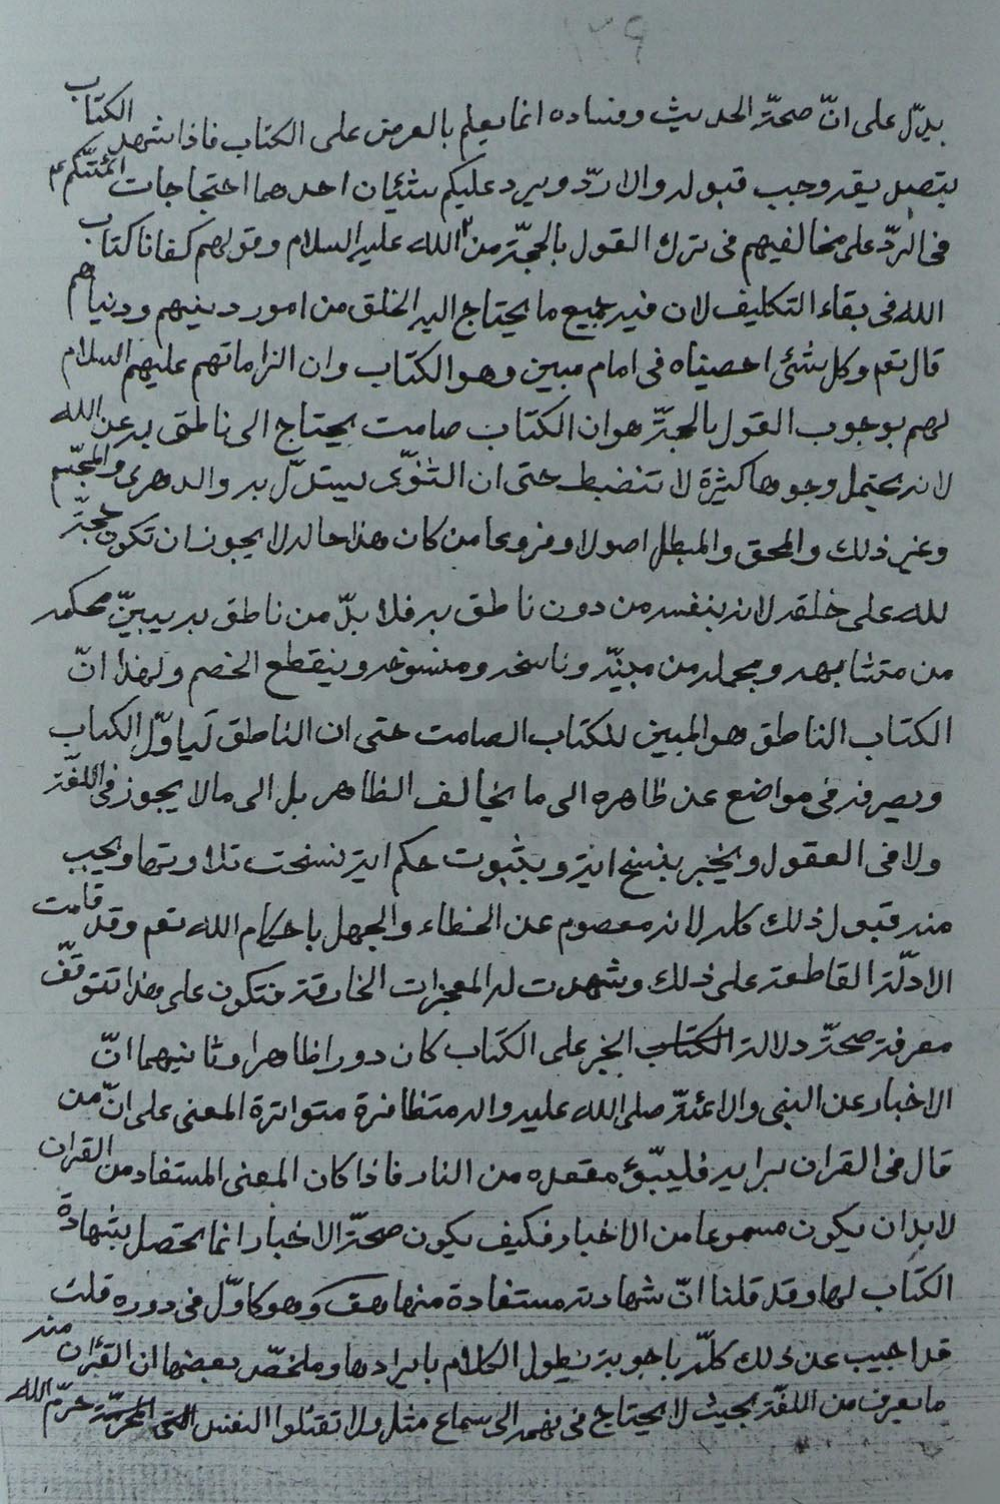 ١٢٩
يدلّ على انّ صحّة الحديث وفساده انما يعلم بالعرض على الكتاب فاذا شهد الكتاب
بتصديقه وجب قبوله والا ردّ ويرد عليكم شيئان احدهما احتجاجات ائمتكم ع
فى الردّ على مخالفيهم فى ترك القول بالحجّة من الله عليه السلام وقولهم كفانا كتاب
الله فى بقاء التكليف لان فيه جميع ما يحتاج اليه الخلق من امور دينهم ودنياهم
قال تعم وكل شئ احصيناه فى امام مبين وهو الكتاب وان الزاماتهم عليهم السلام
لهم بوجوب القول بالحجّة هو ان الكتاب صامت يحتاج الى ناطق به عن الله
لانه يحتمل وجوها كثيرة لا تنضبط حتى ان الثنوّى ليستدّل به والدهرى والمجسّم
وغير ذلك والمحق والمبطل اصولا وفروعا من كان هذا حاله لا يجوز ان تكون حجّة
لله على خلقه لانه بنفسه من دون ناطق به فلا بدّ من ناطق به يبيّن محكمه
من متشابهه ومجمله من مبيّنه وناسخه ومنسوخه وينقطع الخصم ولهذا انّ
الكتاب الناطق هو المبين للكتاب الصامت حتى ان الناطق لَياوّل الكتاب
ويصرفه فى مواضع عن ظاهره الى ما يخالف الظاهر بل الى ما لا يجوز فى اللغة
ولا فى العقول ويخبر بنسخ اية وبثبوت حكم اية نسخت تلاوتها ويجب
منه قبول ذلك كله لانه معصوم عن الخطاء والجهل باحكام الله تعم وقد قامت
الادلّة القاطعة على ذلك وشهدت له المعجزات الخارقة فتكون على هذا تتوقّف
معرفة صحّة دلالة الكتاب الخبر على الكتاب كان دورا ظاهرا وثانيهما انّ
الاخبار عن النبى والائمّة صلى الله عليه واله متظافرة متواترة المعنى على انّ من
قال فى القران برايه فليتبوّء مقعده من النار فاذا كان المعنى المستفاد من القران
لا بد ان يكون مسموعا من الاخبار فكيف يكون صحّة الاخبار انما يحصل بشهادة
الكتاب لها وقد قلنا انّ شهادته مستفادة منها هف وهو كاوّل فى دوره قلت
قد اجيب عن ذلك كلّه باجوبة يطول الكلام بايرادها وملخصّه بعضها ان القران منه
ما يعرف من اللغة بحيث لا يحتاج فى فهمه الى سماع مثل ولا تقتلوا النفس التى حرّم الله